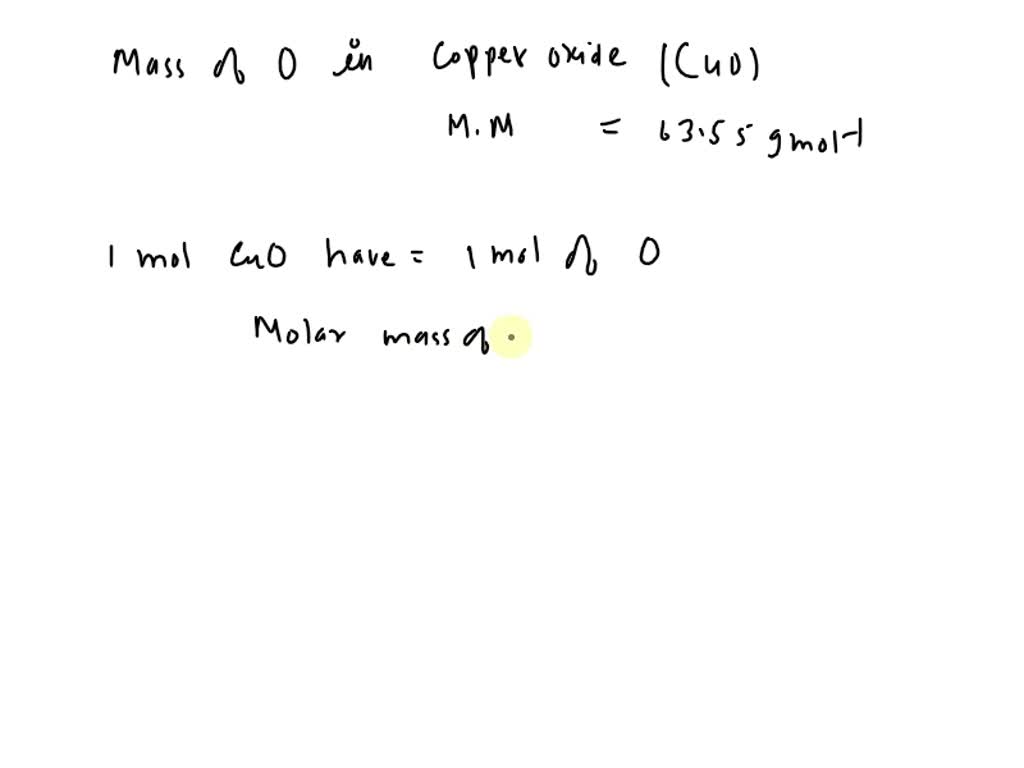 Mass of O in Copper oxide (CuO)
M.M = 63.55 gmol-1
1 mol CuO have = 1 mol of O
Molar mass of